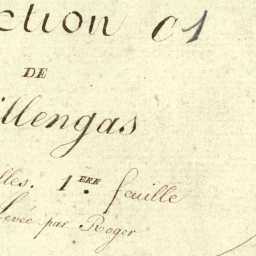 ction C1
DE
illengas
lles. 1.ERE feuille
Levée par Roger